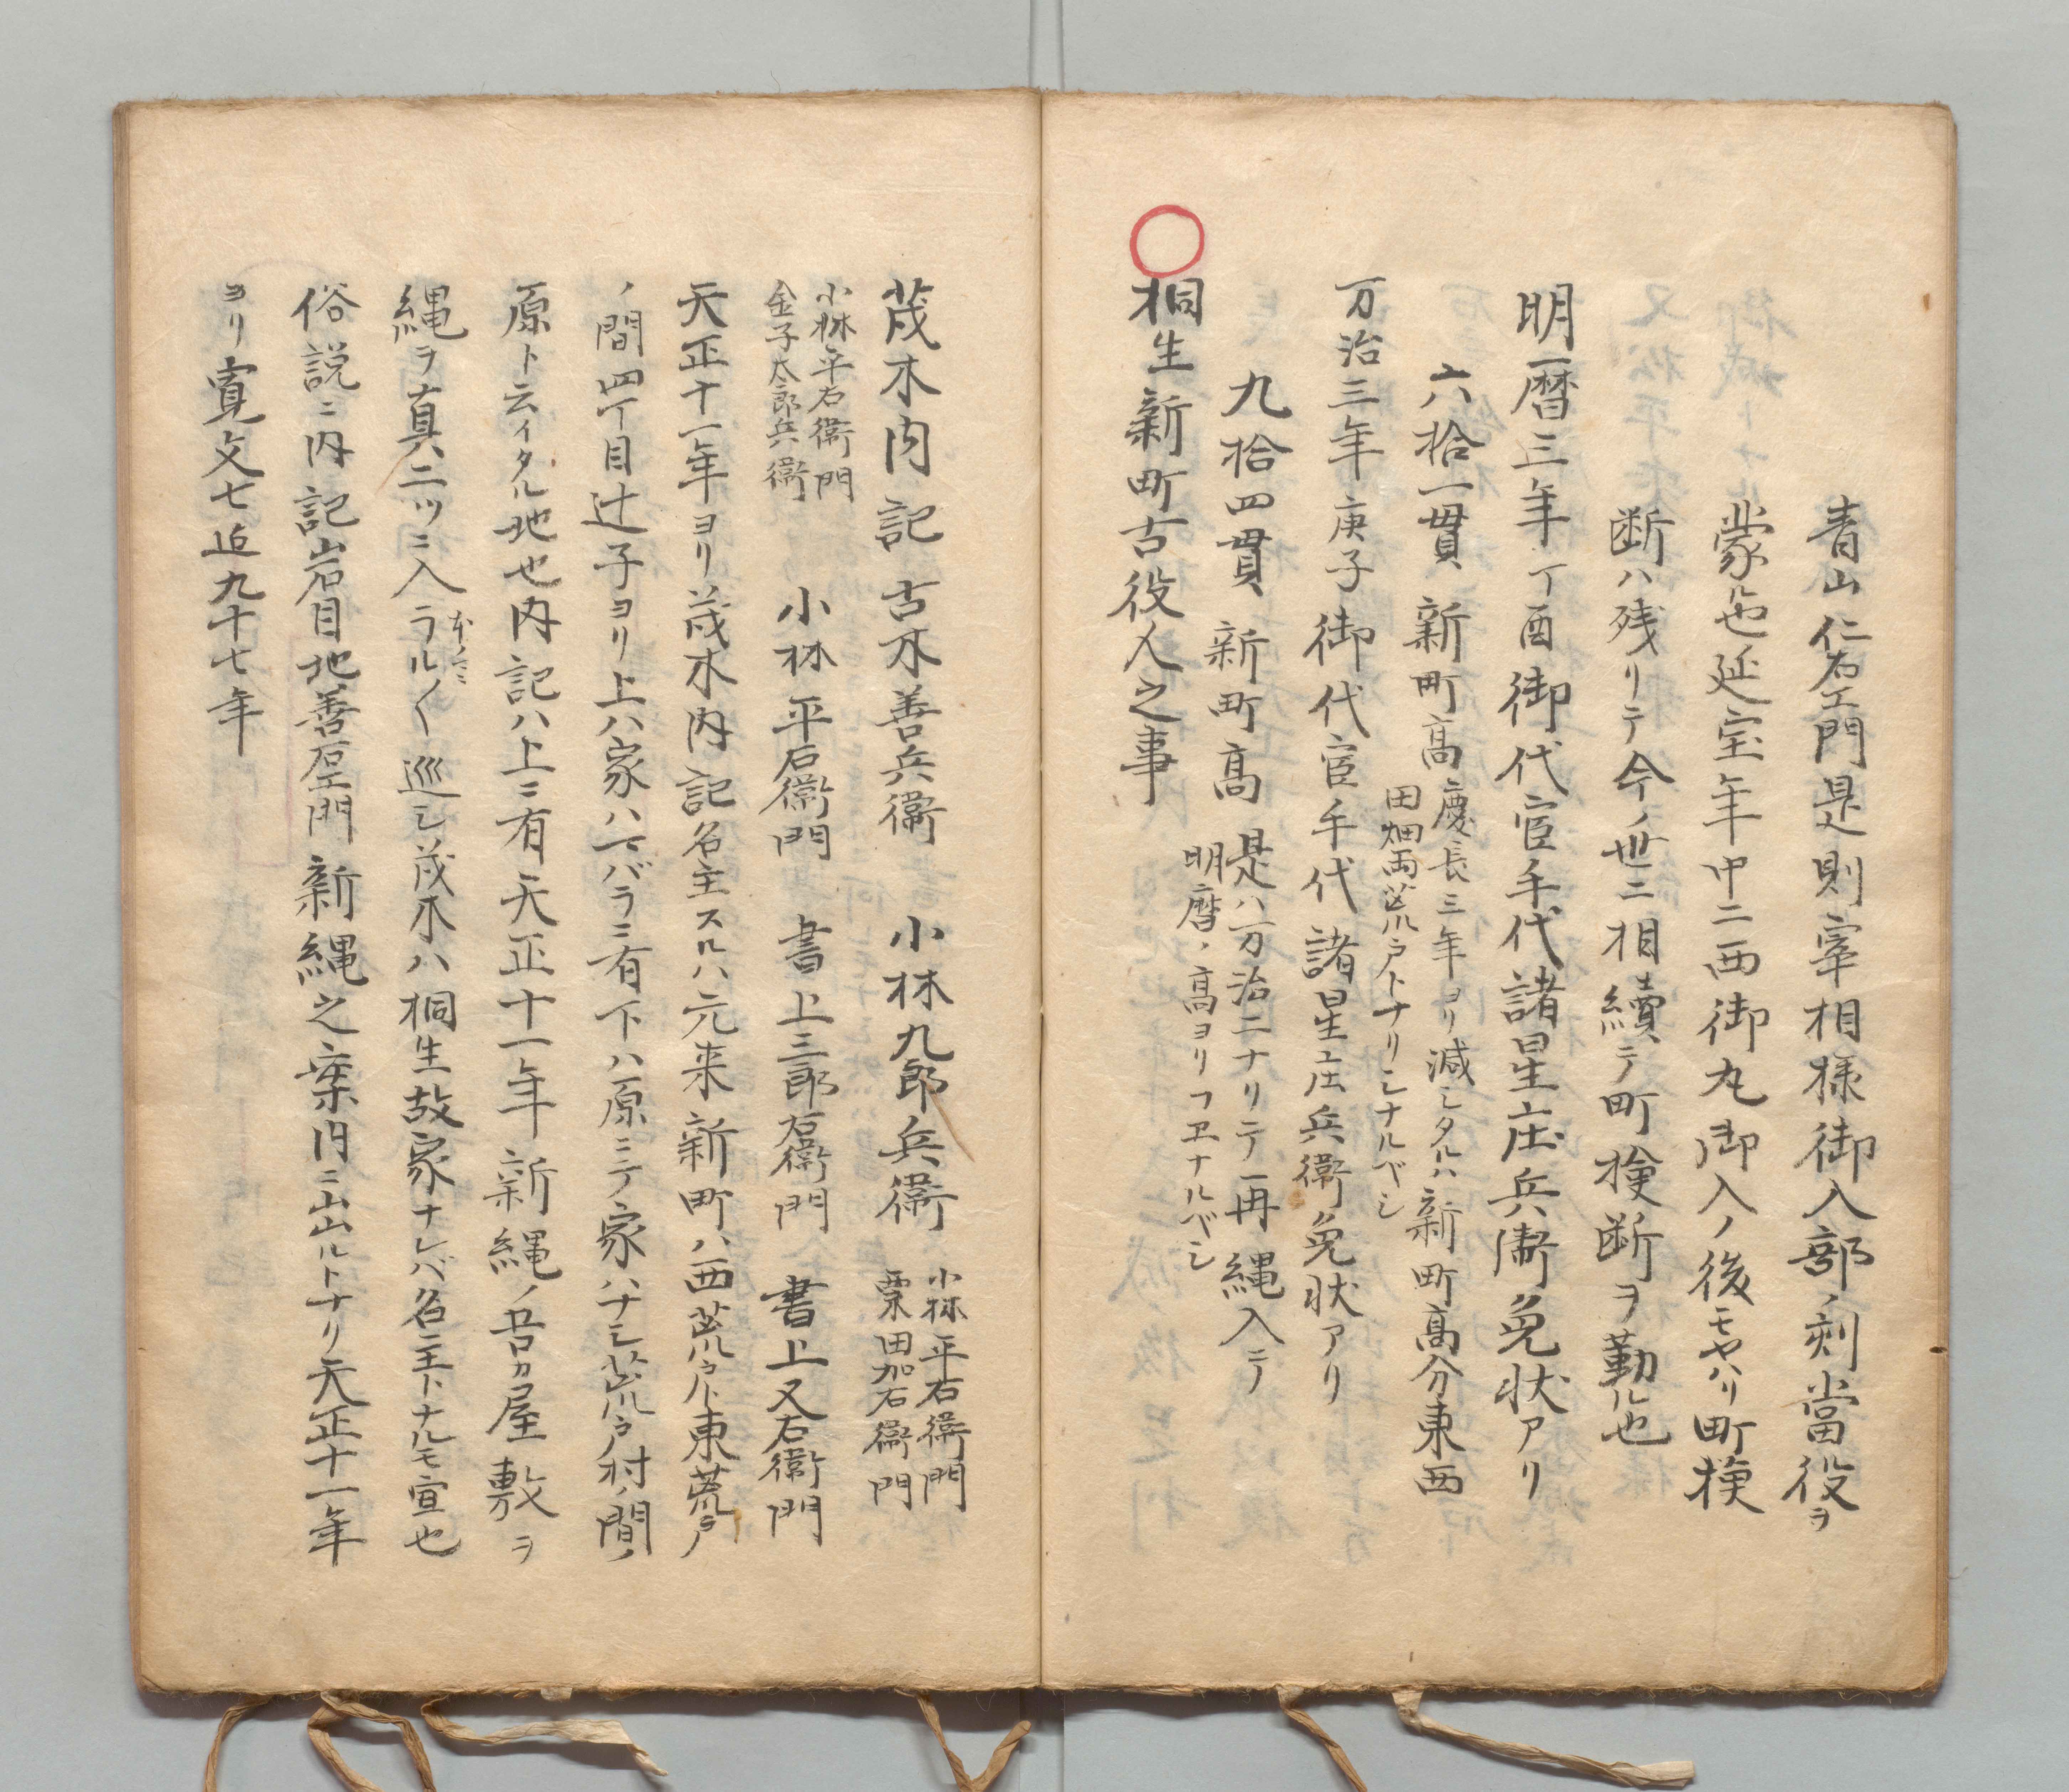 青山仁右エ門是則宰相様御入部ノ刻當役ヲ
蒙ル也延宝年中ニ西御丸御入ノ後モヤハリ町検
断ハ残リテ今ノ世ニ相續テ町検断ヲ勤ル也
明暦三年丁酉御代官手代諸星庄兵衛免状アリ
六拾一貫 新町高
慶長三年ヨリ減シタルハ新町高分東西
田畑両荒戸トナリシナルベシ
万治三年庚子御代官手代諸星庄兵衛免状アリ
九拾四貫 新町高
是ハ万治ニナリテ一再縄入ニテ
明暦ノ高ヨリフエナルベシ
桐生新町古役人之事
茂木内記 古木善兵衛 小林九郎兵衛
小林平右衛門
粟田加右衛門
小林平右衛門
金子太郎兵衛
小林平右衛門 書上三郎右衛門 書上又右衛門
天正十一年ヨリ茂木内記名主スルハ元来新町ハ西荒戸ト東荒戸
ノ間四丁目辻子ヨリ上ハ家ハマバラニ有下ハ原ニテ家ハナシ荒戸村ノ間ノ
原ト云イタル地也内記ハ上ニ有天正十一年新縄ノ吾カ屋敷ヲ
縄ヲ真二ツニ入ラルノく巡シ茂木ハ桐生故家ナレバ名主トナルモ宣也
本ノミミ
俗説ニ内記岩目地善右エ門新縄之案内ニ出ルトナリ天正十一年
ヨリ寛文七迠九十七年